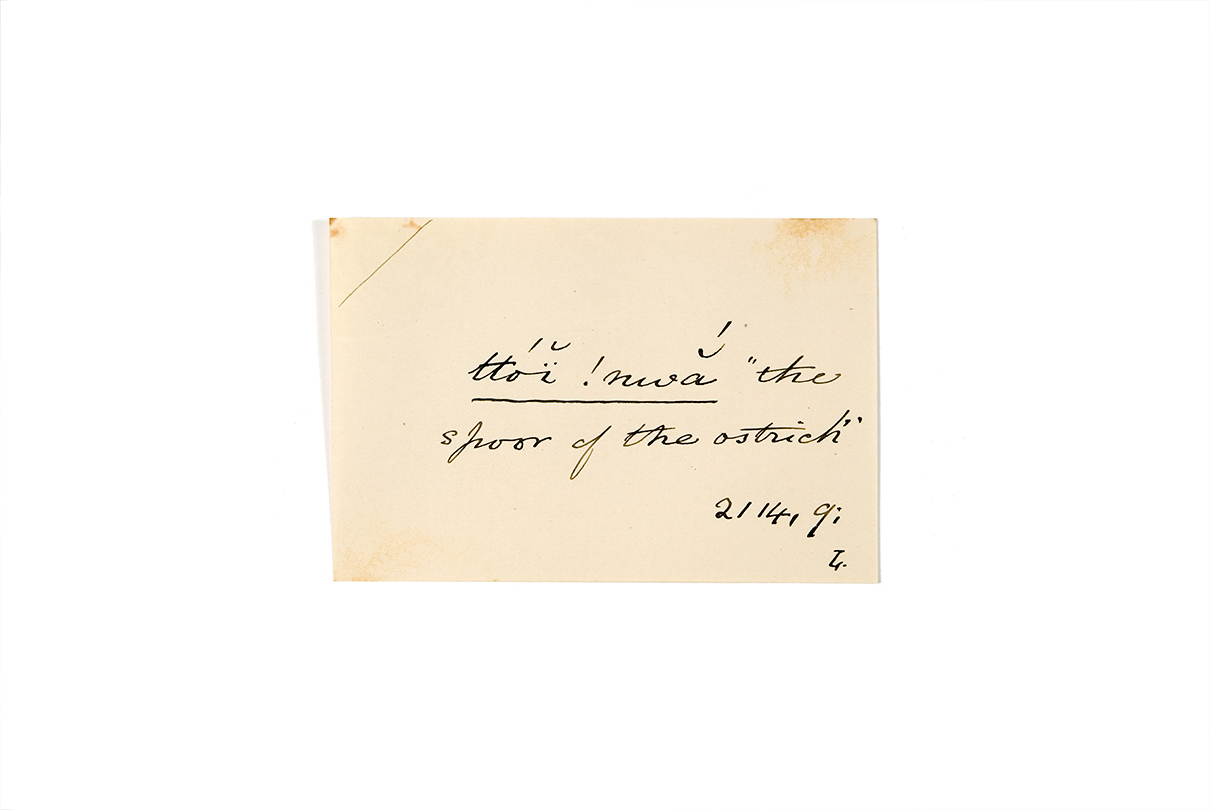 ttóĭ̈ !nwắ "the
spoor of the ostrich"
2114, 9;
L.